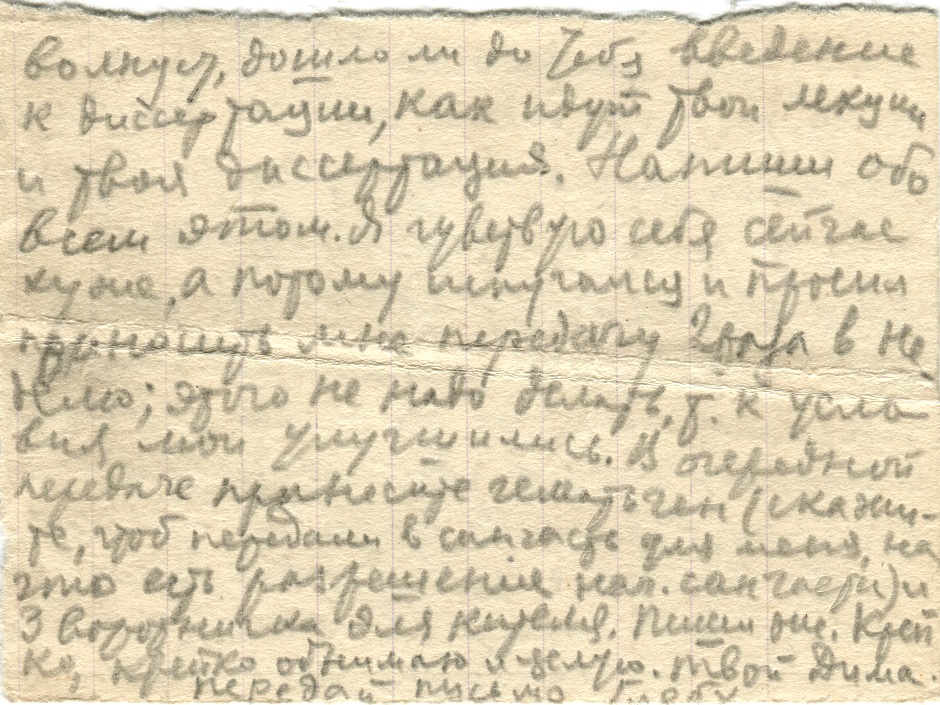 волнует, дошло ли до Тебя введение
к диссертации, как идут твои лекции
и твоя диссертация. Напиши обо
всем этом. Я чувствую себя сейчас
хуже, а потому испугался и просил
приносить мне передачу 2 раза в не
делю; этого не надо делать, т. к усло
вия мои улучшились. В очередной
передаче принесите гематоген (скажи-
те, чтоб передали в санчасть для меня, на
это есть разрешение нач. санчасти) и
3 воротничка для кителя. Пиши же. Креп
ко, крепко обнимаю и целую. Твой Дима.
Передай письмо